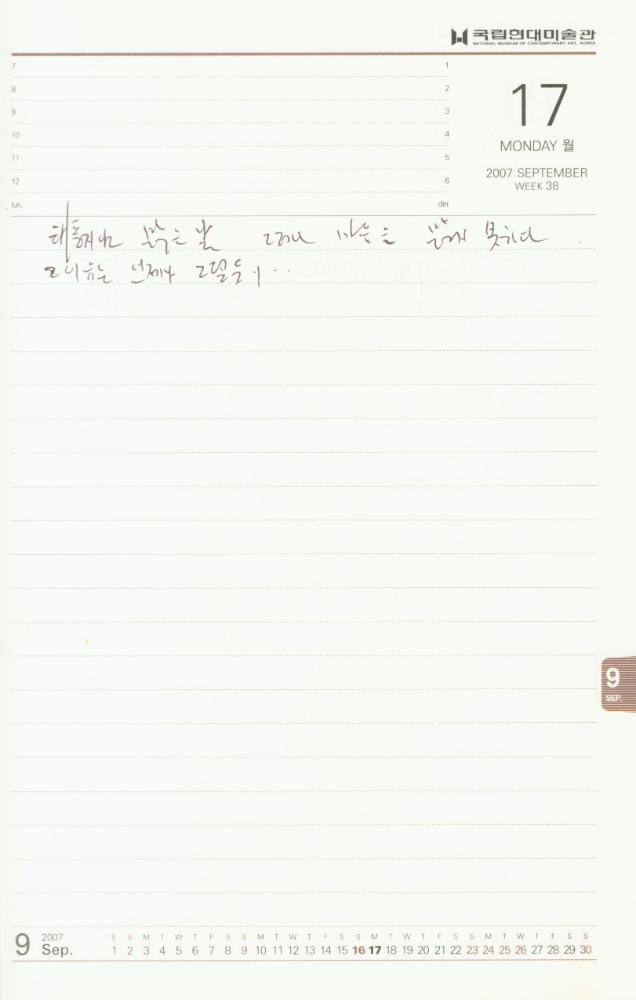 국립현대미술관
NATIONAL MUSEUM OF CONTEMPORARY ART, KOREA
7
8
9
10
11
12
lun.
1
2
3
4
5
6
din.
17
MONDAY 월
2007 SEPTEMBER
WEEK 38
맑은 날 그러나 마음은 맑지 못하다
그 이유는 언제나
9
SEP.
9 2007 Sep.
S S M T W T F S S M T W T F S S M T W T F S S M T W T F S S
1 2 3 4 5 6 7 8 9 10 11 12 13 14 15 16 17 18 19 20 21 22 23 24 25 26 27 28 29 30